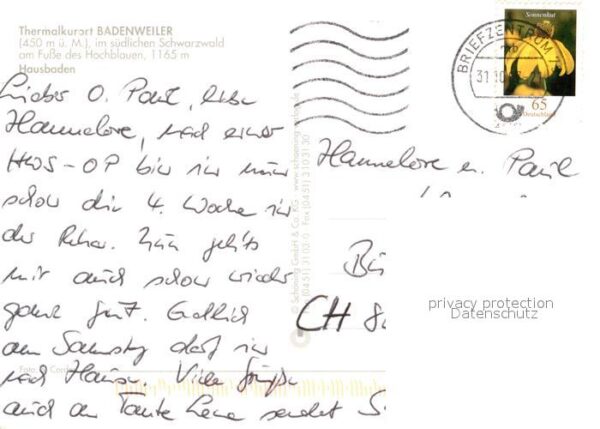 Thermalkurort BADENWEILER
(450 m ü. M.), im südlichen Schwarzwald
am Fuße des Hochblauen, 1165 m
Hausbaden
Lieber O. Paul, liebe
Hannelore, nach einer
HWS-OP bin ich nun
schon die 4. Woche in
der Reha. Nun geht's
mir auch schon wieder
ganz gut. Endlich
am Samstag darf ich
nach Hause. Viele Grüße
auch an Tante Lena sendet
© Schöning GmbH & Co. KG · www.schoening-verlag.de
BRIEFZENTRUM 7
31.10.
Sonnenhut
65
Deutschland
Hannelore u. Paul
CH
privacy protection
Datenschutz